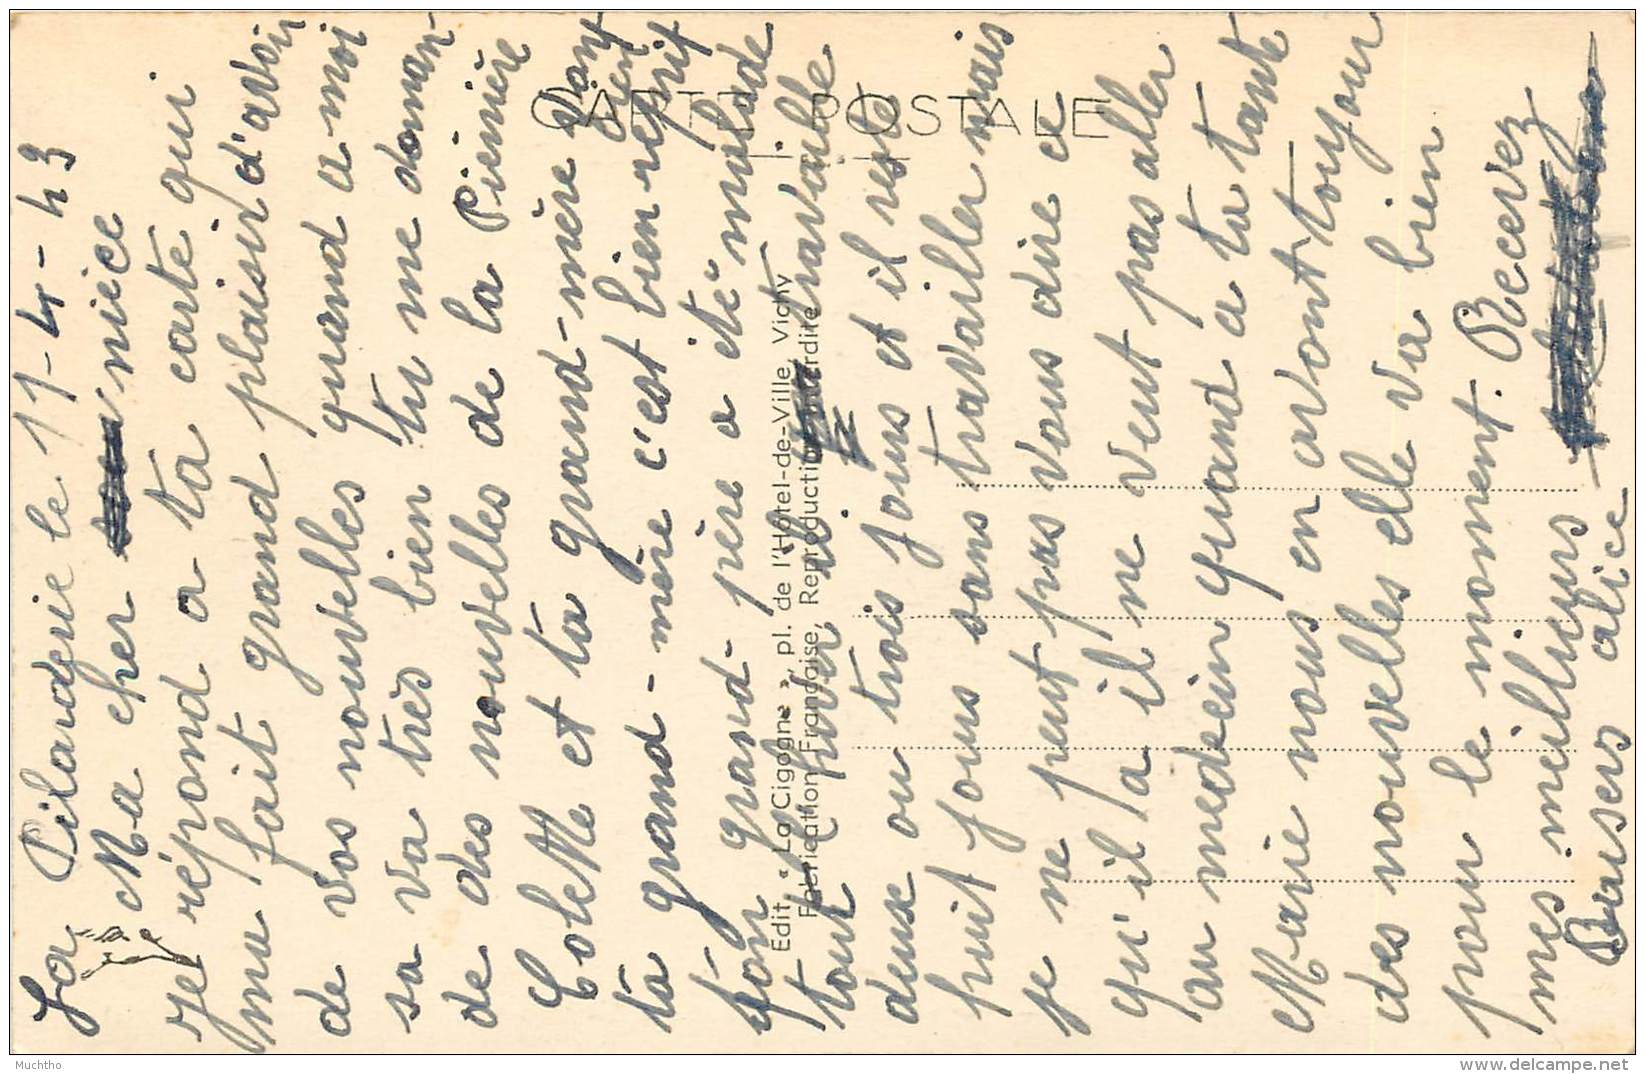 La Pilarderie le 11-4-43
Ma cher nièce
je répond a ta carte qui
ma fait grand plaisir d'avoir
de vos nouvelles quand a moi
sa va très bien tu me doman-
de des nouvelles de la Pierrière
Colette et ta grand-mère vont bien
ta grand-mère c'est bien repris
ton grand père a été malade
tout l'hiver il travaille
deux ou trois jours et il reste
huit jours sans travailler mais
je ne peut pas vous dire ce
qu'il a il ne veut pas aller
au medecin quand a ta tante
Marie nous en avont toujour
des nouvelles elle va bien
pour le moment. Recevez
mes meilleurs
Baisers alice
CARTE POSTALE
Edit. « La Cigogne », pl. de l'Hôtel-de-Ville, Vichy
Fabrication Française, Reproduction interdite
Muchtho
www.delcampe.net